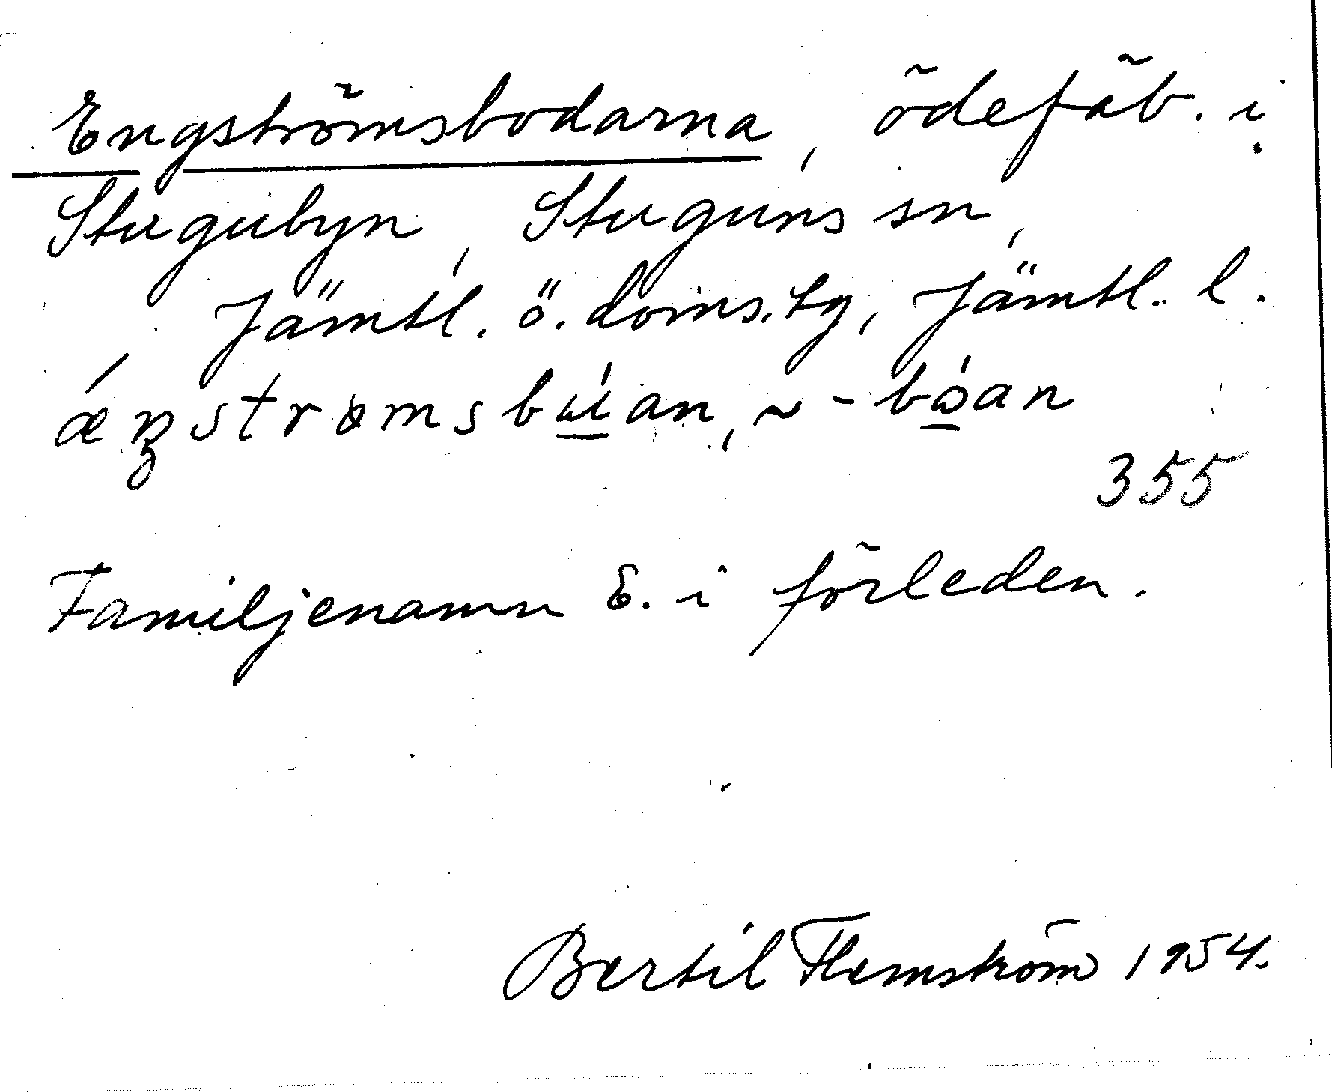 Engströmsbodarna, ödefäb. i
Stugubyn, Stuguns sn,
Jämtl. ö. doms. tg, Jämtl. l.
ǽŋstrømsbúan, ~ -bóan
355
Familjenamn E. i förleden.
Bertil Flemström 1954.